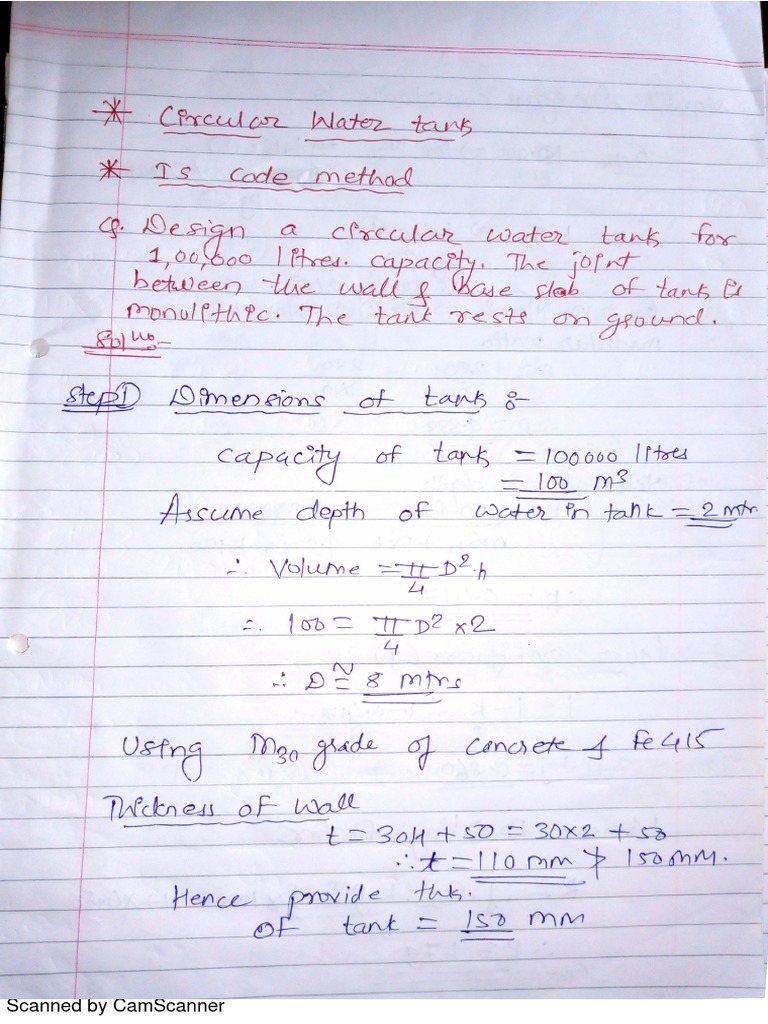 * Circular Water tank
* Is code method
Q. Design a circular water tank for
1,00,000 litres. capacity. The joint
between the wall & base slab of tank is
monolithic. The tank rests on ground.
Soln:-
Step1) Dimensions of tank :-
capacity of tank = 100000 litres
= 100 m³
Assume depth of water in tank = 2 mtr
∴ Volume = π/4 D².h
∴ 100 = π/4 D² x2
∴ D ≅ 8 mtrs
Using M30 grade of concrete & Fe415
Thickness of wall
t = 30H + 50 = 30x2 + 50
∴ t = 110 mm ≯ 150mm.
Hence provide thk.
of tank = 150 mm
Scanned by CamScanner